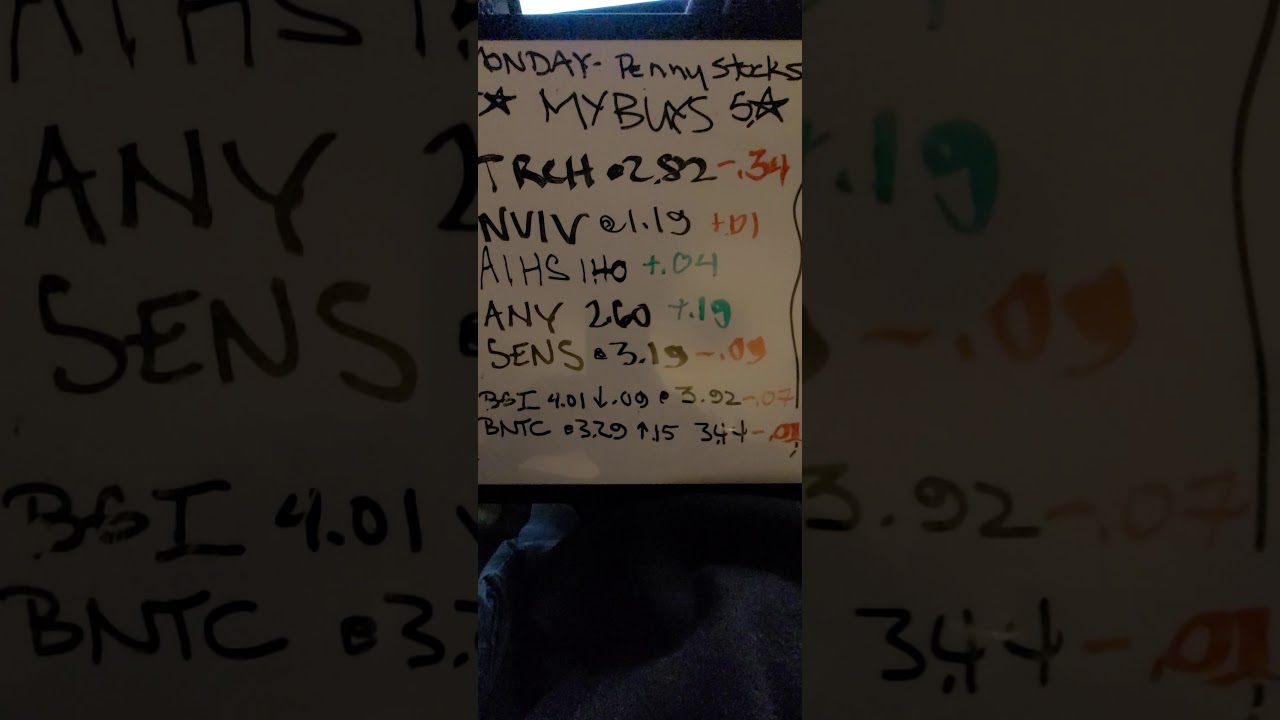 ONDAY- Penny Stocks
5☆ MYBUYS 5☆
TRCH @2.82 -.34
NVIV @1.19 +.01
AIHS 1.40 +.04
ANY 2.60 +.19
SENS @3.19 -.09
BSI 4.01 ↓.09 @ 3.92 -.07
BNTC @3.29 ↑.15 3.44 -.01